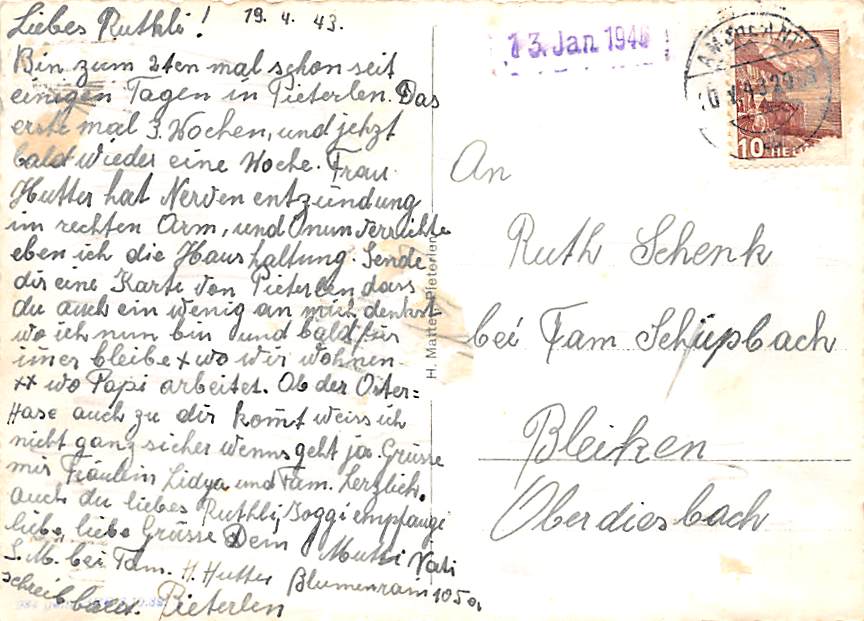 Liebes Ruthli! 19. 4. 43.
Bin zum 2ten mal schon seit
einigen Tagen in Pieterlen. Das
erste mal 3. Wochen, und jetzt
bald wieder eine Woche. Frau
Hutter hat Nerven entzündung
im rechten Arm, und nun verrichte
eben ich die Haushaltung. Sende
dir eine Karte von Pieterlen dass
du auch ein wenig an mich denkst
wo ich nun bin und bald für
imer bleibe + wo wir wohnen
++ wo Papi arbeitet. Ob der Oster=
Hase auch zu dir komt weiss ich
nicht ganz sicher wenns geht ja. Grüsse
mir Fräulein Lidya und Fam. herzlich.
auch du liebes Ruthli, Joggi empfange
liebe, liebe Grüsse Dein Mutti Vati
S. M. bei Fam. H. Hutter Blumenrain 105a
schreib Pieterlen
H. Matter, Pieterlen
13. Jan 194
10 HELV
An
Ruth Schenk
bei Fam Schüpbach
Bleiken
Oberdiesbach